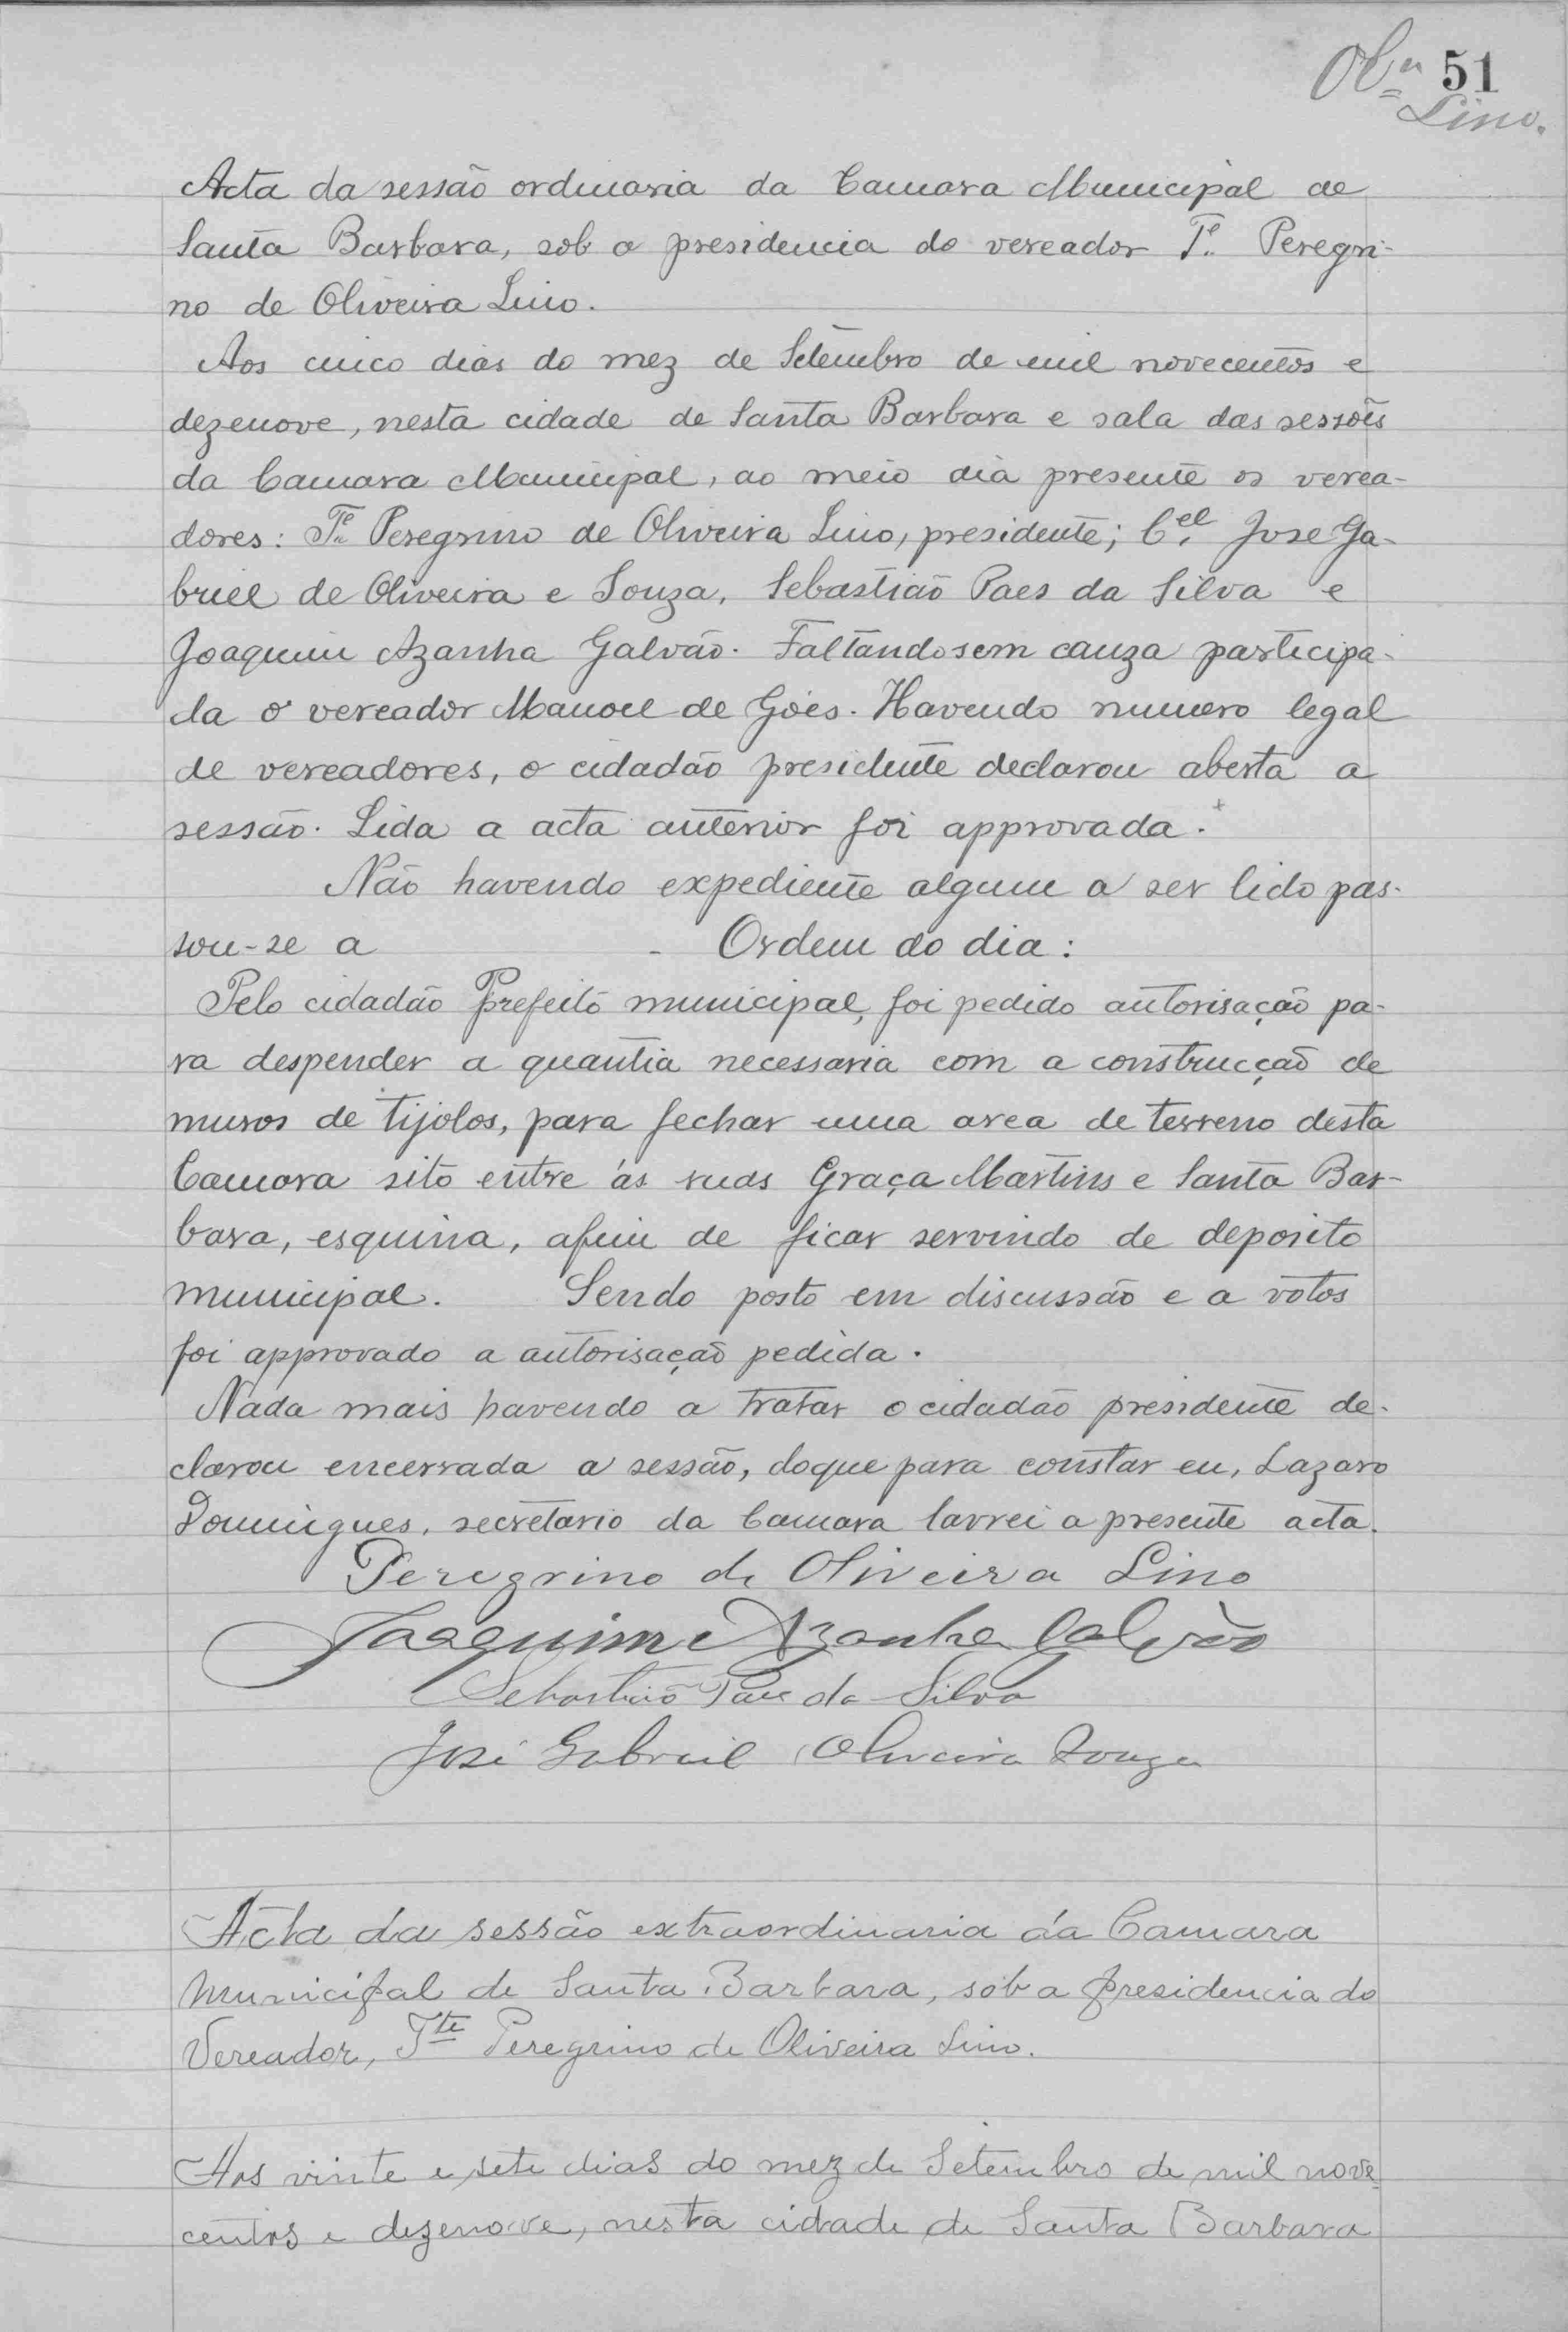 51
Lino.
Acta da sessão ordinaria da Camara Municipal de
Santa Barbara, sob a presidencia do vereador Te. Peregri-
no de Oliveira Lino.
Aos cinco dias do mez de Setembro de mil novecentos e
dezenove, nesta cidade de Santa Barbara e sala das sessões
da Camara Municipal, ao meio dia presente os verea-
dores: Te. Peregrino de Oliveira Lino, presidente; Cel. Jose Ga-
briel de Oliveira e Souza, Sebastião Paes da Silva e
Joaquim Azanha Galvão. Faltando sem cauza participa-
da o vereador Manoel de Góes. Havendo numero legal
de vereadores, o cidadão presidente declarou aberta a
sessão. Lida a acta anterior foi approvada.
Não havendo expediente algum a ser lido pas-
sou-se a - Ordem do dia:
Pelo cidadão Prefeito municipal, foi pedido autorisação pa-
ra despender a quantia necessaria com a construcção de
muros de tijolos, para fechar uma area de terreno desta
Camara sito entre ás ruas Graça Martins e Santa Bar-
bara, esquina, afim de ficar servindo de deposito
municipal. Sendo posto em discussão e a votos
foi approvado a autorisação pedida.
Nada mais havendo a tratar o cidadão presidente de-
clarou encerrada a sessão, do que para constar eu, Lazaro
Domingues, secretario da Camara lavrei a presente acta.
Peregrino de Oliveira Lino
Joaquim Azanha Galvão
Sebastião Paes da Silva
José Gabriel Oliveira Souza
Acta da sessão extraordinaria da Camara
Municipal de Santa Barbara, sob a presidencia do
Vereador, Tte Peregrino de Oliveira Lino.
Aos vinte e sete dias do mez de Setembro de mil nove
centos e dezenove, nesta cidade de Santa Barbara